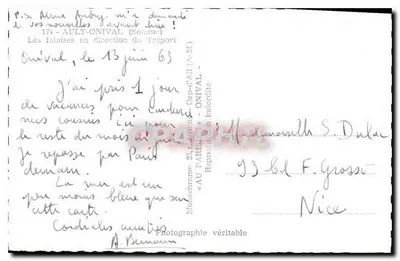 P.S. Mme Aubry m'a demandé
de vos nouvelles avant hier !
174 - AULT-ONIVAL (Somme)
Les falaises en direction du Tréport
Onival, le 13 juin 63
J'ai pris 1 jour
de vacances pour conduire
mes cousines ici pour
le reste du mois et
je repasse par Paris
demain.
La mer est un
peu moins bleue que sur
cette carte.
Cordiales amitiés
Cap-d'Ail (A.-M.)
"AU PARIS - ONIVAL -
Reproduction interdite
Mademoiselle S. Dulac
93 bd F. Grosso
Nice
Photographie véritable